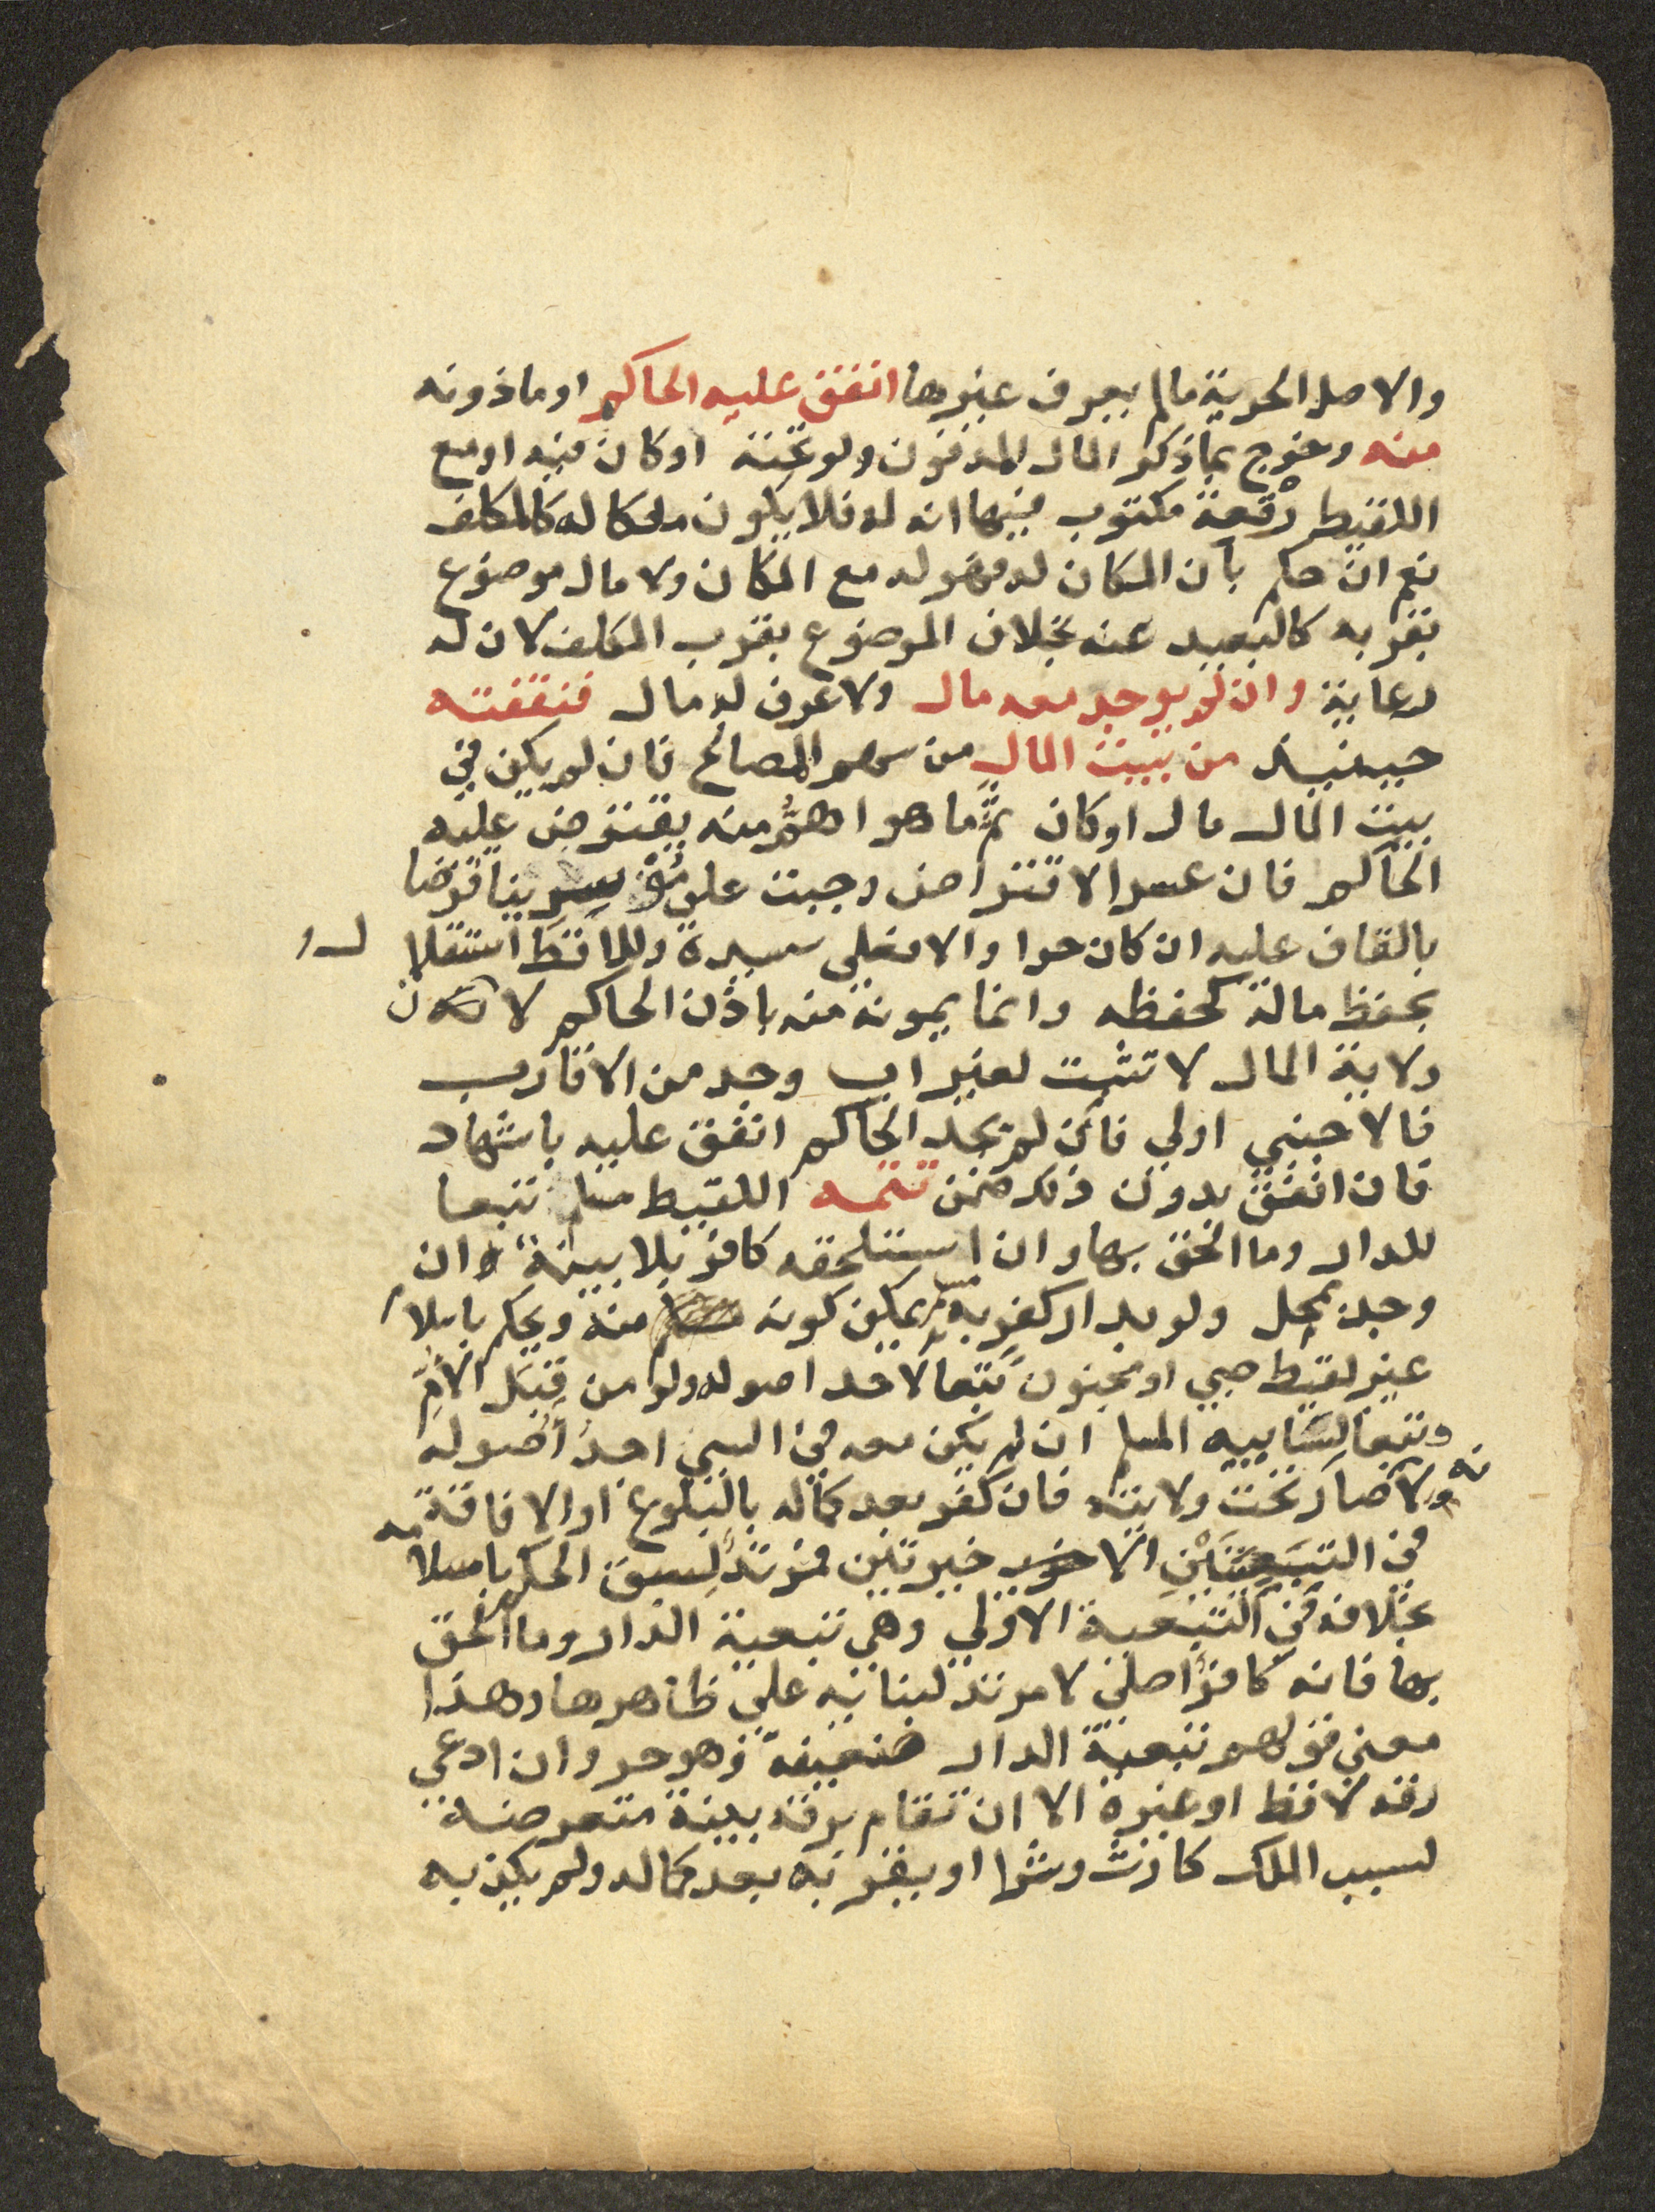 والاصل الحرية ما لم يعرف غيرها انفق عليه الحاكم او ماذونه
منه وخرج بما ذكر المال المدفون ولو تحته او كان فيه او مع
اللقيط رقعة مكتوب فيها انه له فلا يكون ملكا له كالمكلف
نعم ان حكم بان المكان له فهو له مع المكان ولا مال موضوع
بقربه كالبعيد عنه بخلاف الموضوع بقرب المكلف لان له
رعاية وان لم يوجد معه مال ولا عرف له مال فنفقته
حينئيذ من بيت المال من سهم المصالح فان لم يكن في
بيت المال مال او كان ثم ما هو اهم منه يقترض عليه
الحاكم فان عسر الاقتراض وجبت على موسرينا قرضا
بالقاف عليه ان كان حرا والا فعلى سيده وللاقط استقلال
بحفظ ماله كحفظه وانما يمونه منه باذن الحاكم لان
ولاية المال لا تثبت لغير اب وجد من الاقارب
فالاجنبي اولى فان لم يجد الحاكم انفق عليه باشهاد
فان انفق بدون ذلك ضمن تتمه اللقيط مسلم تبعا
للدار وما الحق بها وان استلحقه كافر بلا بينة ان
وجد بمحل ولو بدار كفر به مسلم يمكن كونه منه ويحكم باسلام
غير لقيط صبي او مجنون تبعا لاحد اصوله ولو من قبل الأم
وتبعا لسابيه المسلم ان لم يكن معه في السبي احد أصوله
لانه صار تحت ولايته فان كفر بعد كماله بالبلوغ او الافاقة
في التبعيتين الاخيرتين فمرتد لسبق الحكم باسلامه
بخلافه في التبعية الاولى وهي تبعية الدار وما الحق
بها فانه كافر اصلي لا مرتد لبنائه على ظاهرها وهذا
معنى قولهم تبعية الدار ضعيفة وهو حر وان ادعى
رقه لاقط او غيره الا ان تقام برقه بينة متعرضه
لسبب الملك كارث وشرا او يقر به بعد كماله ولم يكذبه